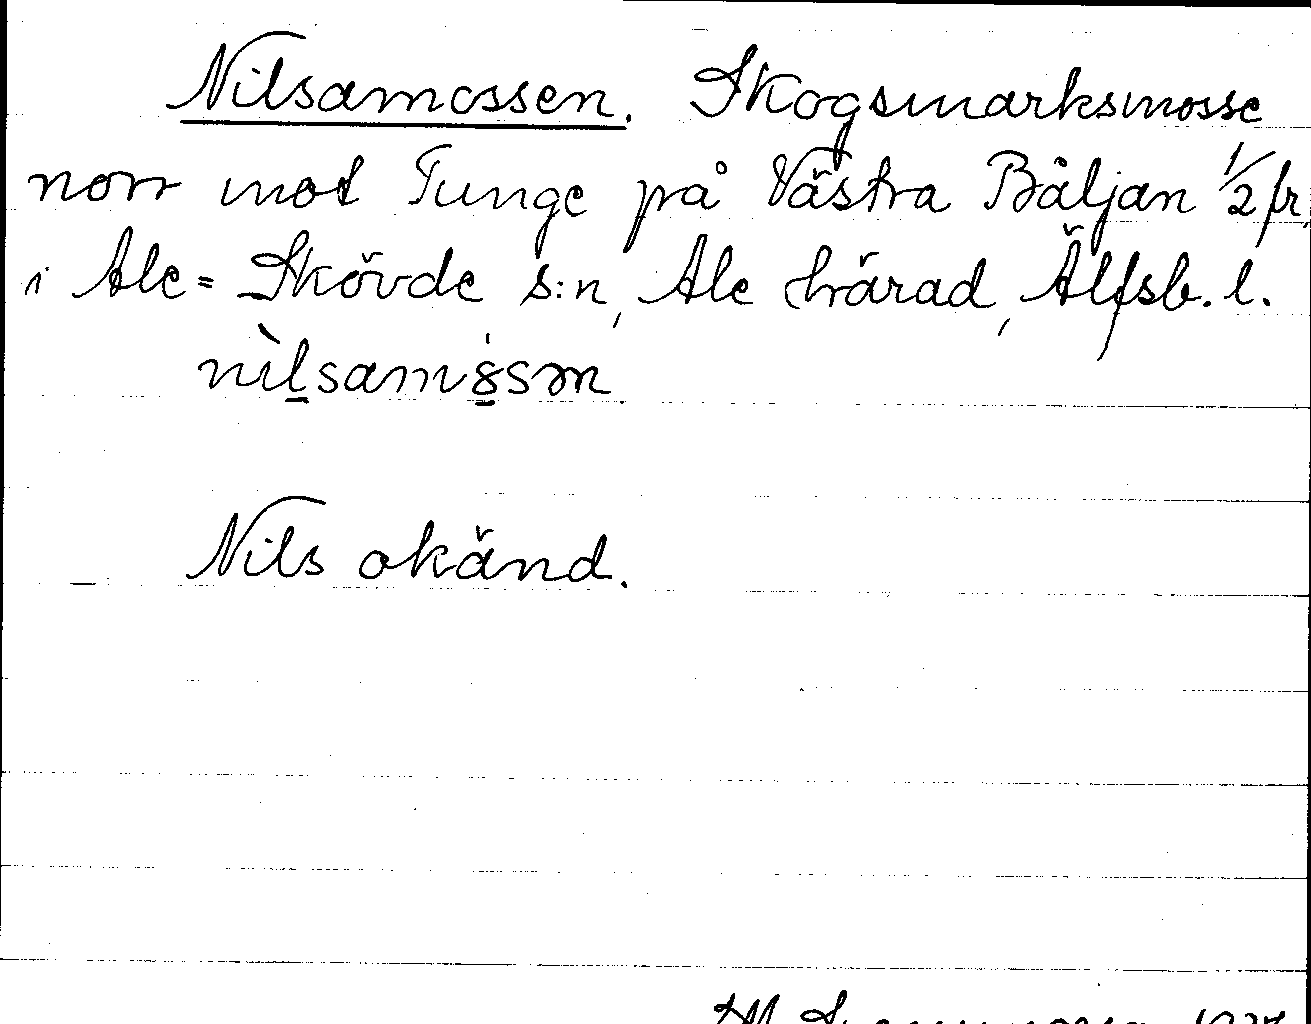 Nilsamossen. Skogsmarksmosse
norr mot Tunge på Västra Båljan 1/2 fr,
i Ale=Skövde s:n, Ale härad, Älfsb. l.
nìlsam8sən

Nils okänd.